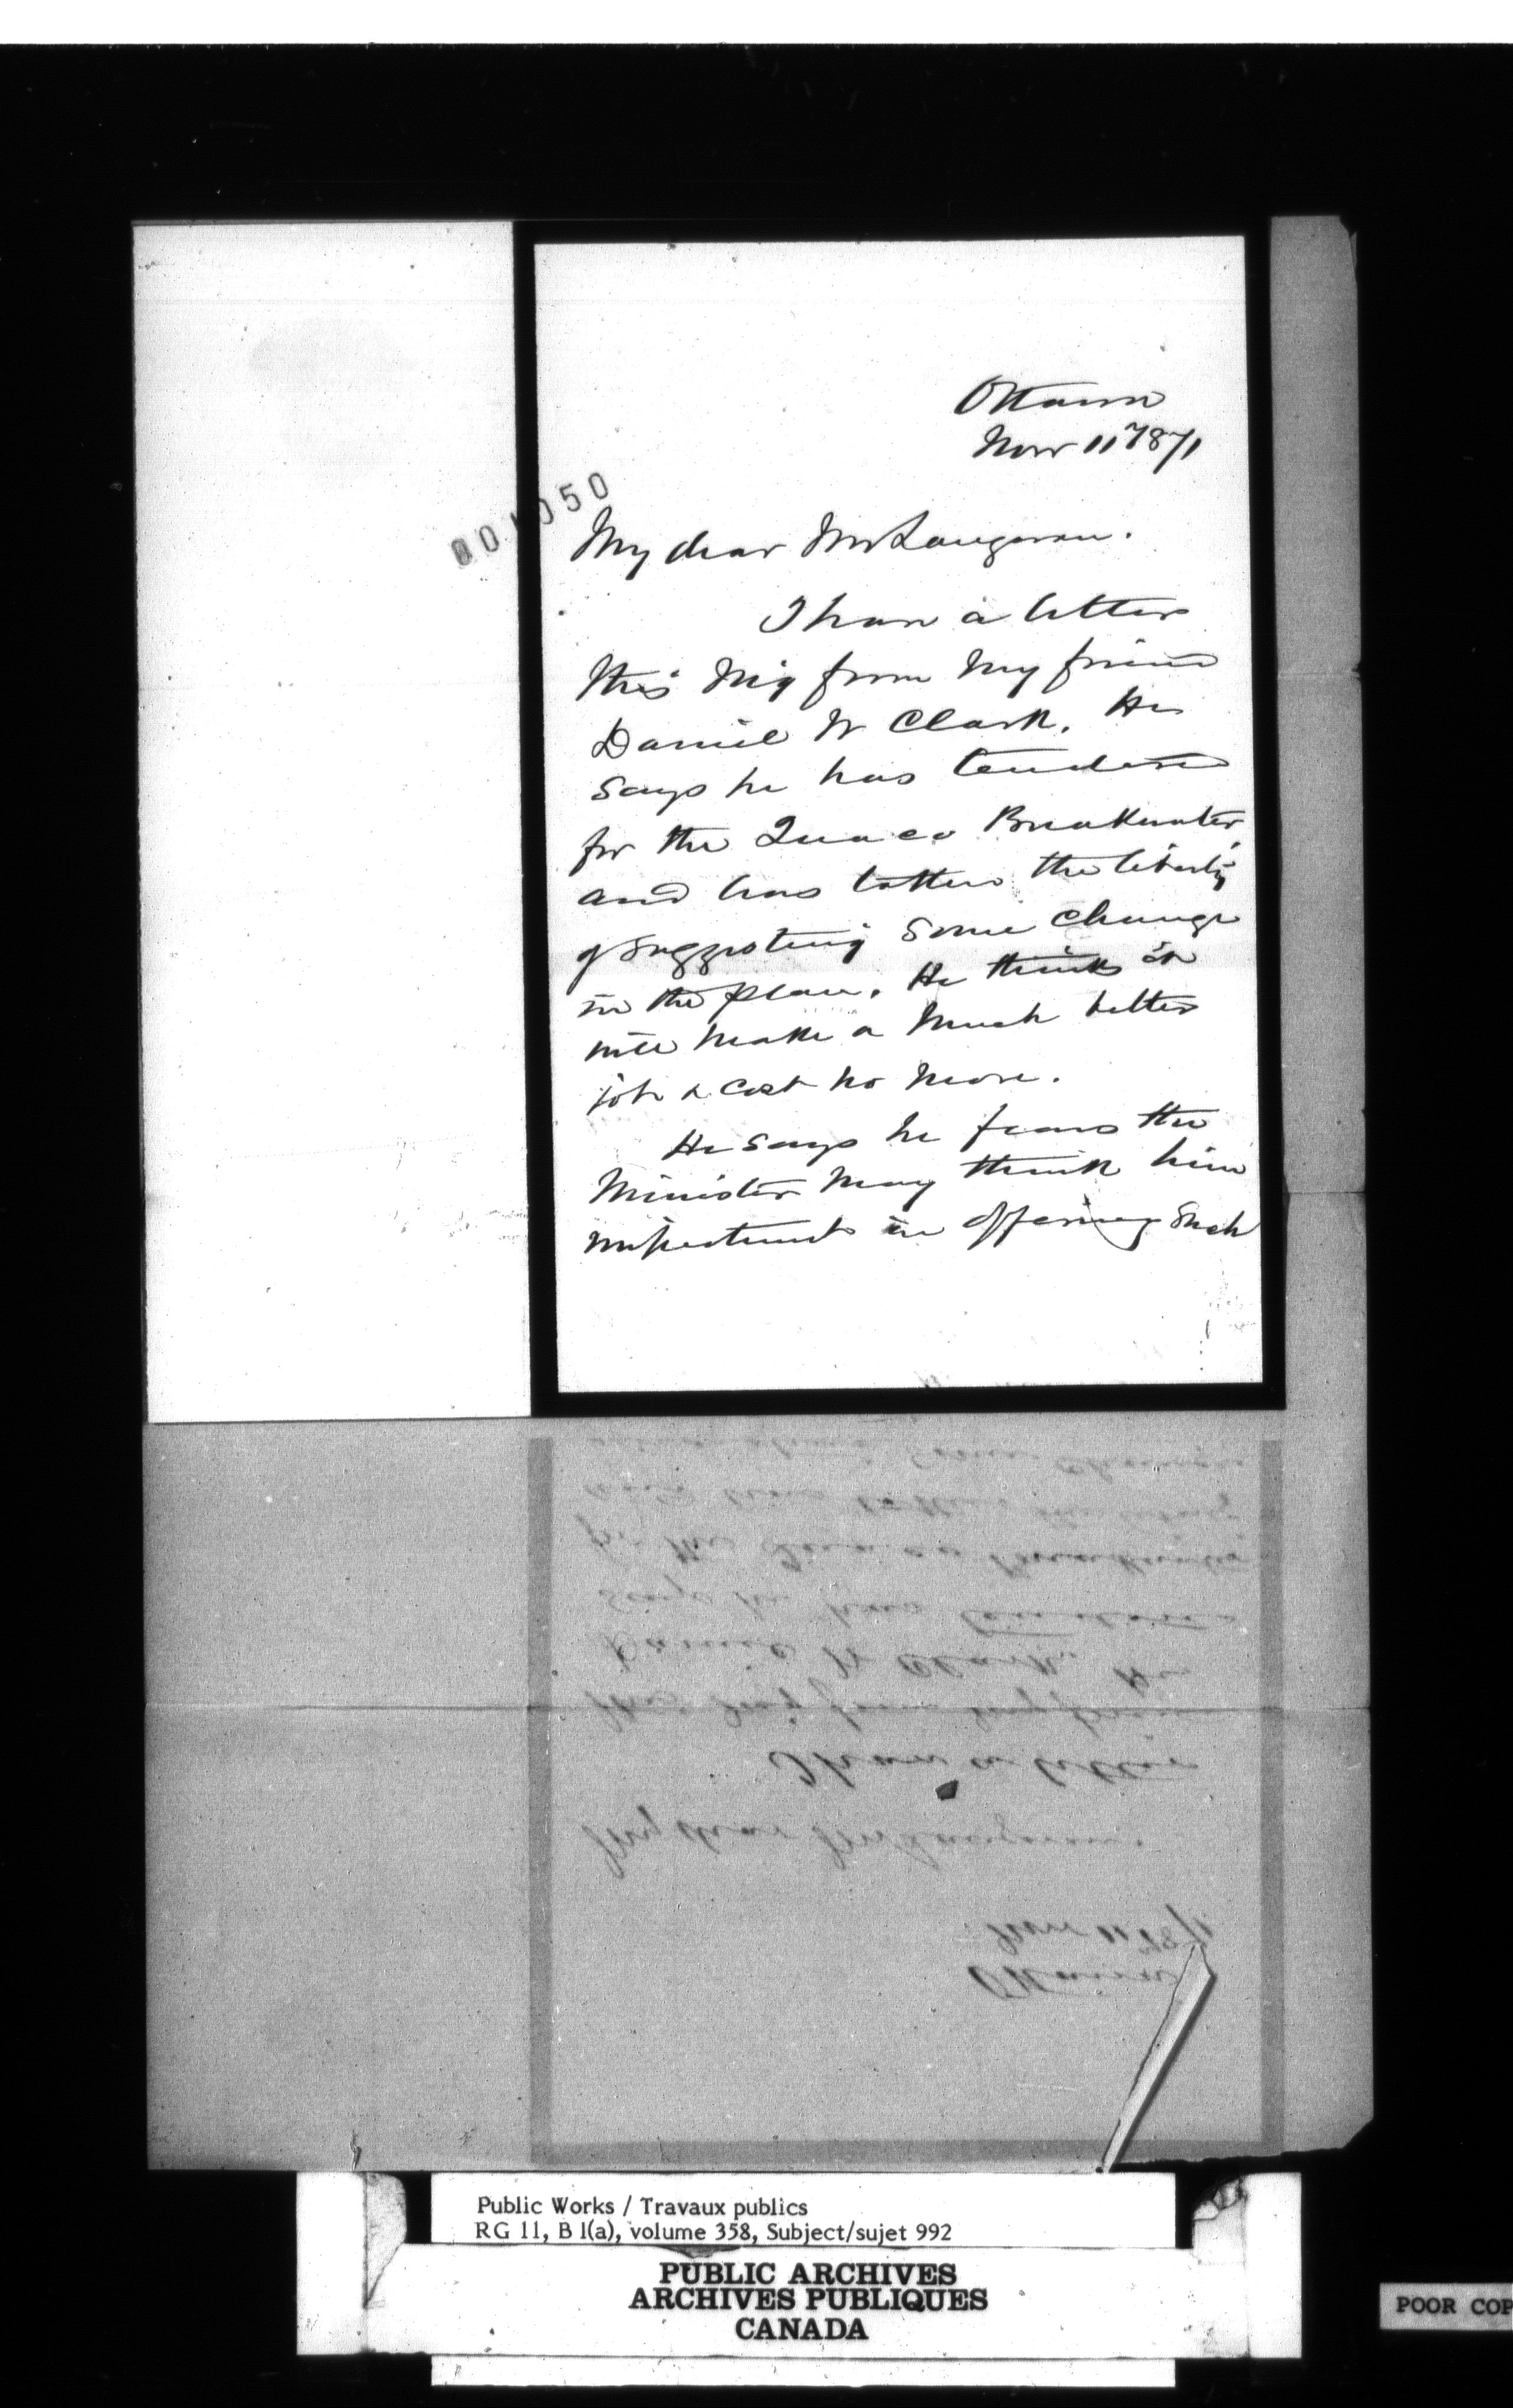 Ottawa
Nov 11 / 1871
001050
My dear Mr Langevin.
I have a letter
this Mg from My friend
Daniel W Clark. He
says he has tendered
for the Quaco Breakwater
and has taken the liberty
of suggesting some change
in the plan. He thinks it
will make a Much better
job & cost no more.
He says he fears the
Minister May think him
impertinent in offering such
Public Works / Travaux publics
RG 11, B 1(a), volume 358, Subject/sujet 992
PUBLIC ARCHIVES
ARCHIVES PUBLIQUES
CANADA
POOR COP